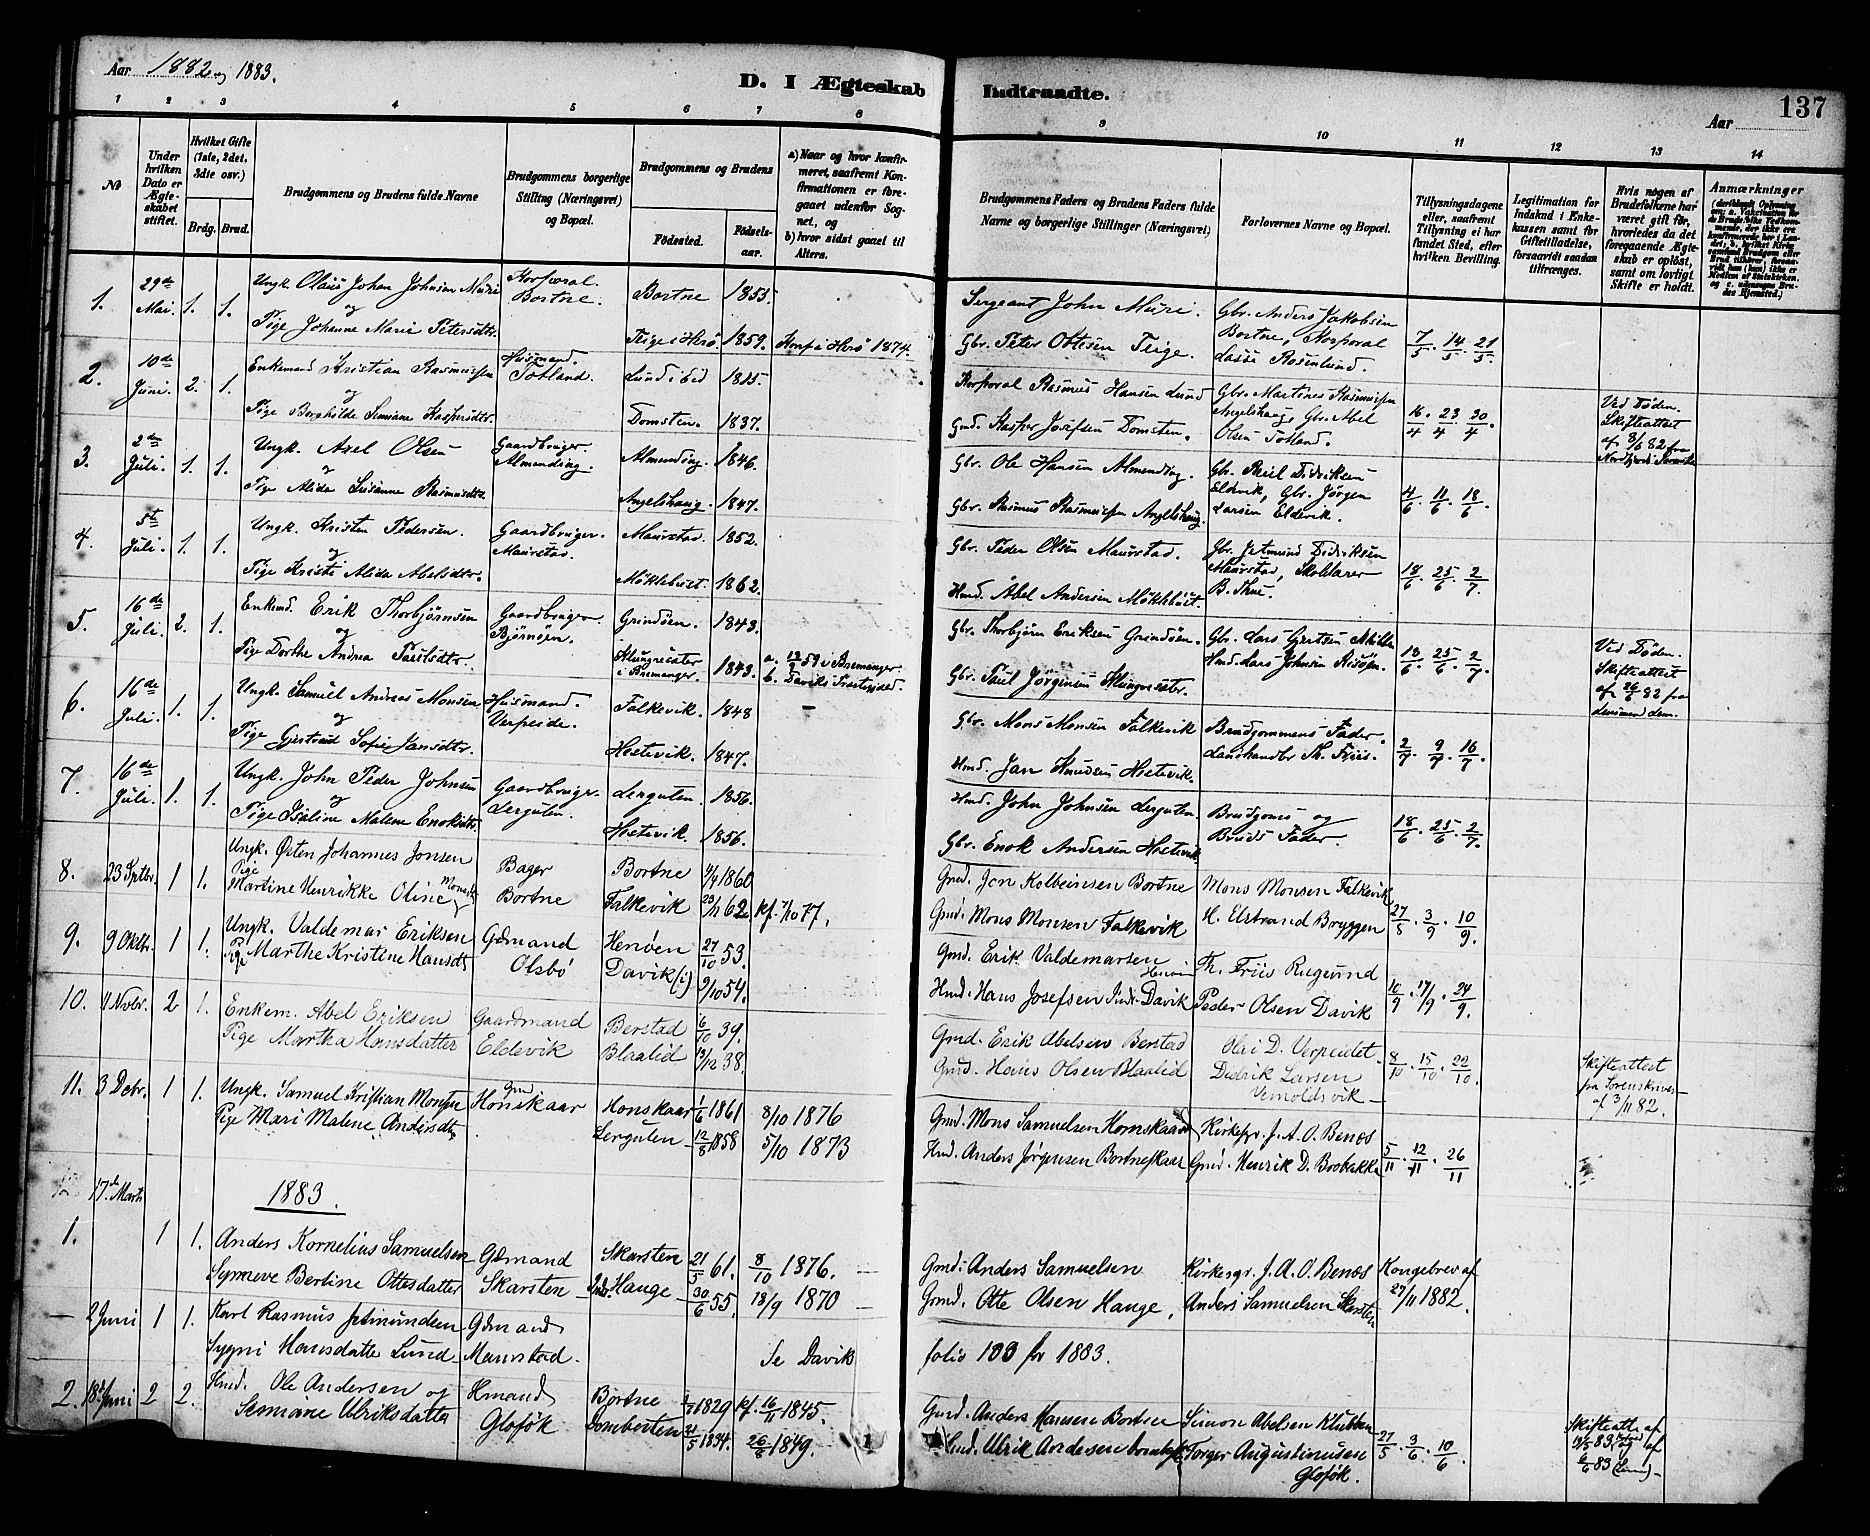 Aar 1882 og 1883.
D. I Ægteskab Indtraadte.
137
Aar
1 2 3 4 5 6 7 8 9 10 11 12 13 14
№
Under hvilken Dato er Ægteskabet stiftet.
Hvilket Gifte (1ste, 2det, 3die osv.)
Brdg. Brud.
Brudgommens og Brudens fulde Navne
Brudgommens borgerlige Stilling (Næringsvei) og Bopæl.
Brudgommens og Brudens
Fødested.
Fødselsaar.
a) Naar og hvor konfirmeret, saafremt Konfirmationen er foregaaet udenfor Sognet, og
b) hvor sidst gaaet til Alters.
Brudgommens Faders og Brudens Faders fulde Navne og borgerlige Stillinger (Næringsvei)
Forlovernes Navne og Bopæl.
Tillysningsdagene eller, saafremt Tillysning ei har fundet Sted, efter hvilken Bevilling.
Legitimation for Indskud i Enkekassen samt for Giftetilladelse, forsaavidt saadan tiltrænges.
Hvis nogen af Brudefolkene har været gift før, hvorledes da det foregaaende Ægteskab er opløst, samt om lovligt Skifte er holdt.
Anmærkninger
1. 29de Mai. 1. 1. Ungk. Olaus Johan Johnsen Muri Korporal. Bortne. Bortne 1855. Sergeant John Muri. Gbr. Anders Jakobsen Bortne, Korporal 7/5. 14/5. 21/5.
og
Pige Johanne Marie Petersdtr. Teige i Herø. 1859. Konf. i Herø 1874. Gbr. Peter Ottesen Teige. Lasse Rosenlund.
2. 10de Juni. 2. 1. Enkemand Kristian Rasmussen Husmand. Totland. Lund i Eid 1815. Korporal Rasmus Hansen Lund Gbr. Martines Rasmussen 16/4. 23/4. 30/4. Ved Døden. Skifteattest
og
Pige Berghilde Simiane Kaspersdtr. Domsten. 1837. Gmd. Kasper Josefsen Domsten. Angelshaug, Gbr. Abel Olsen Totland. af 3/6 82 fra
3. 2de Juli. 1. 1. Ungk. Axel Olsen Gaardbruger. Almending. Almending. 1846. Gbr. Ole Hansen Almending. Gbr. Paul Didriksen 4/6. 11/6. 18/6.
og
Pige Alida Susanne Rasmusdtr. Angelshaug. 1847. Gbr. Rasmus Rasmussen Angelshaug. Eldevik, Gbr. Jørgen Larsen Eldevik.
4. 5te Juli. 1. 1. Ungk. Kristen Pedersen. Gaardbruger. Maurstad. Maurstad. 1852. Gbr. Peder Olsen Maurstad. Gbr. Jetmund Didriksen Maurstad, Skolelærer 18/6. 25/6. 2/7.
og
Pige Kristi Alida Abelsdtr. Møkkebust. 1862. Hmd. Abel Andersen Møklebust. B. Thue.
5. 16de Juli. 2. 1. Enkemd. Erik Thorbjørnsen Gaardbruger Bjørnøen. Grindøen. 1843. Gbr. Thorbjørn Eriksen Grindøen. Gbr. Lars Gjertsen 18/6. 25/6. 2/7. Ved Døden. Skifteattest
og
Pige Dorthe Andrea Paulsdtr. Klungresæter i Bremanger. 1843. a. 12/9 59 i Bremanger. b. Daviks Præstegjeld. Gbr. Paul Jørgensen Klungresætr. Hmd. Lars Johnsen Risøen. af 26/6 82 fra densamme dem.
6. 16de Juli. 1. 1. Ungk. Samuel Andreas Monsen Husmand. Verpeide. Falkevik. 1848 – Gbr. Mons Monsen Falkevik Brudgommens Fader. 2/7. 9/7. 16/7
og
Pige Gjertrud Sofie Jansdtr. Hestevik. 1847. Hmd. Jan Knudsen Hestevik. Landhandler Th. Friis.
7. 16de Juli. 1. 1. Ungk. John Peder Johnsen Gaardbruger. Lerguten. Lerguten. 1856. Hmd. John Johnsen Lerguten Brudgoms og 18/6. 25/6. 2/7.
og
Pige Isaline Malene Enoksdtr. Hestevik. 1856. Gbr. Enok Andersen Hestevik. Bruds Fader.
8. 23 Septbr. 1 1. Ungk. Østen Johannes Jonsen Bager Bortne 4/4 1860 Gmd. Jon Kolbeinsen Bortne Mons Monsen Falkevik
Pige Martine Henrikke Oline Monsdtr Bortne Falkevik 23/11 62 kf. 7/10 77. Gmd. Mons Monsen Falkevik H. Elstrand Bryggen 27/5. 3/9. 10/9.
9. 9 Oktbr. 1 1. Ungk. Valdemar Eriksen Gdmand Henøen 27/10 53. Gmd. Erik Valdemarsen Henøen Th. Friis Rugsund
Pige Marthe Kristine Hansdt Olsbø Davik (i) 9/10 54. Hmd. Hans Josefsen Indr. Davik Peder Olsen Davik 10/9. 17/9. 24/9.
10. 11 Novbr. 2 1. Enkem. Abel Eriksen Gaardmand Berstad 6/10 39. Gmd. Erik Abelsen Berstad Ole D. Verpeidet 8/10. 15/10. 22/10. Skifteattest
Pige Martha Hansdatter Eldevik Blaalid 19/12 38. Gmd. Hans Olsen Blaalid Didrik Larsen Vemoldsvik – fra Sorenskriver af 3/11 82.
11. 3 Debr. 1 1. Ungk. Samuel Kristian Monsen Gm Honskaar Honskaar 1/6 1861 8/10 1876 Gmd. Mons Samuelsen Hornskaar Kirkesgr. J. A. O. Benæs
Pige Mari Malene Andersdtr Lerguten 12/8 1858 5/10 1873 Hmd. Anders Jørgensen Bortneskaar Gmd. Henrik D. Brobakke 5/11. 12/11. 26/11
1883.
17de Marts
1. 1 1. Anders Kornelius Samuelsen Gdmand Skarsten 21/5 61. 8/10 1876. – Gmd. Anders Samuelsen Kirkesgr. J. A. O. Benæs Kongebrev af
Synneve Bertine Ottesdatter Skarsten – Indr. Hauge 30/6 55. 18/9 1870 – Gmd. Otte Olsen Hauge, Anders Samuelsen Skarsten 27/11 1882.
– 2 Juni 1 1. Karl Rasmus Jetmundsen Gdmand
Sygni Hansdatter Lund Maurstad. Se Davik folio 133 for 1883.
2. 18de Juni 2 2. Hmd. Ole Andersen og Hmand Bortne 1829 kf. 16/11 1845. Gmd. Anders Hansen Bortne Simon Abelsen Klubben Skifteatt. af
Semiane Ulriksdatter Gloføk Dombesten 21/5 1834. 26/8 1849. Hmd. Ulrik Andersen Torger Augustinussen Gloføk. 27/5. 3/6. 10/6 19/5 83 og af 6/6 83